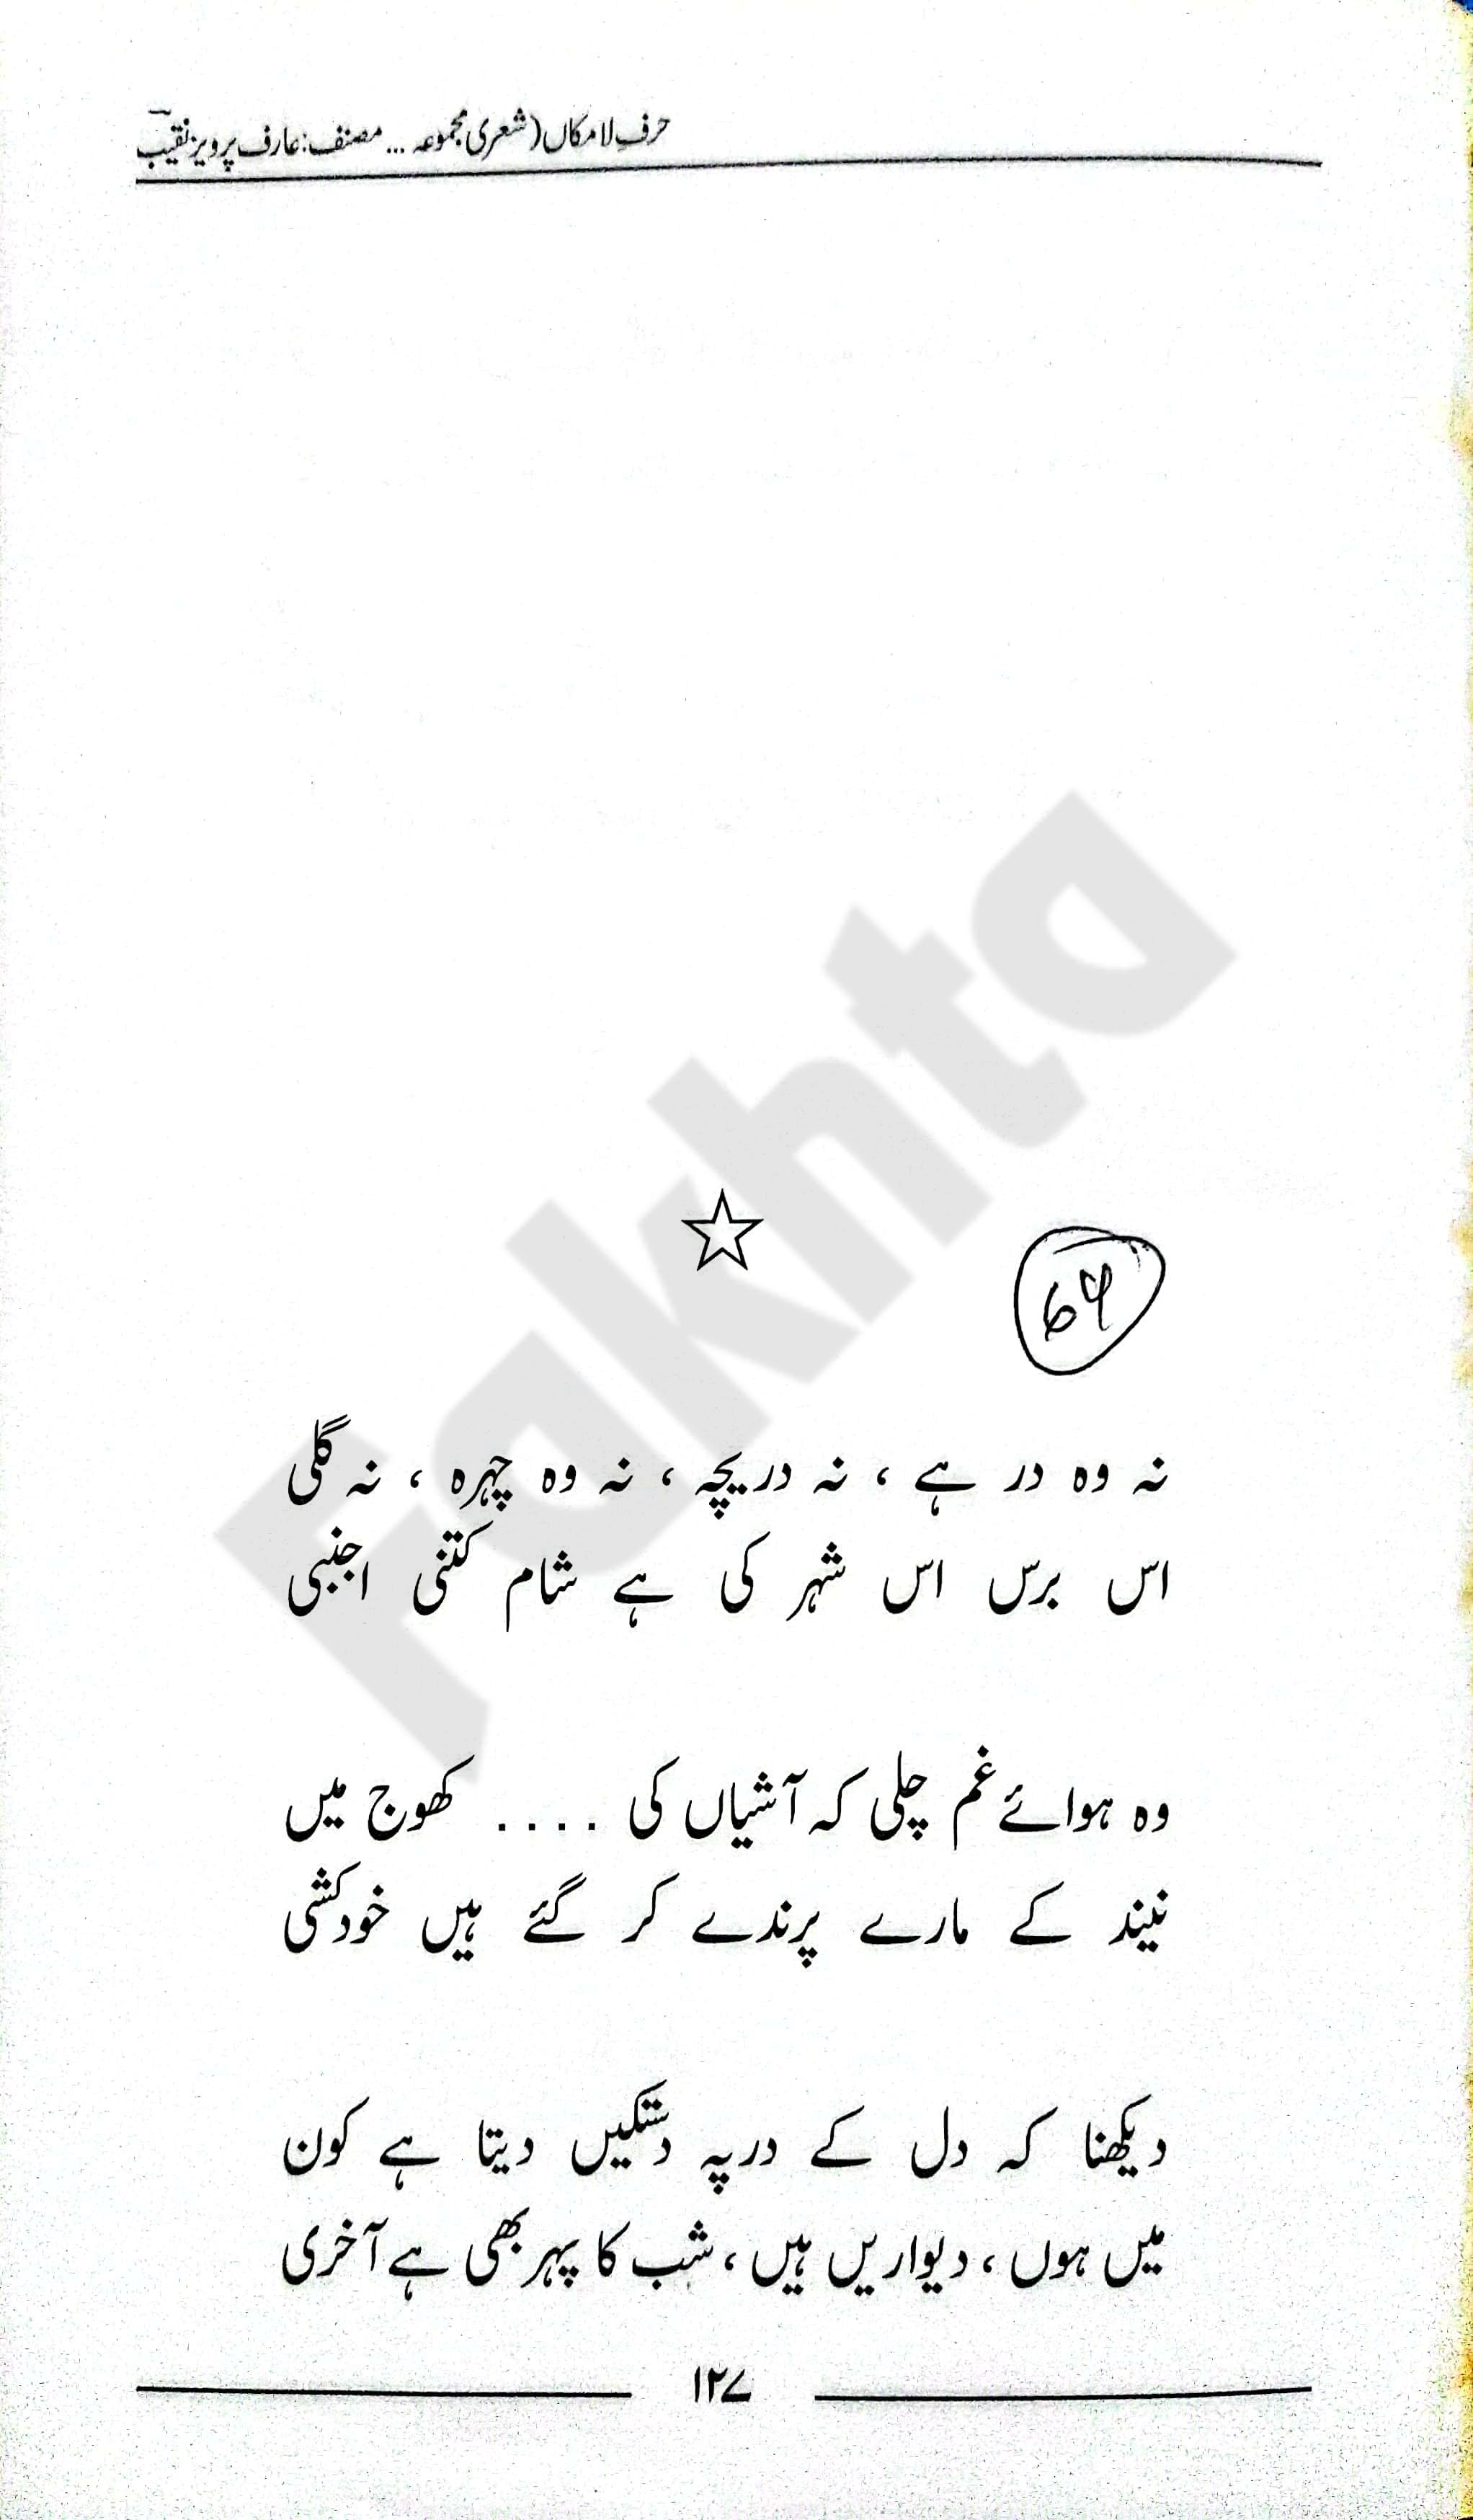 حرفِ لامکاں (شعری مجموعہ ... مصنف: عارف پرویز نقیبؔ
Fakhta
☆
64
نہ وہ در ہے ، نہ دریچہ ، نہ وہ چہرہ ، نہ گلی
اس برس اس شہر کی ہے شام کتنی اجنبی
وہ ہوائے غم چلی کہ آشیاں کی .... کھوج میں
نیند کے مارے پرندے کر گئے ہیں خودکشی
دیکھنا کہ دل کے در پہ دستکیں دیتا ہے کون
میں ہوں ، دیواریں ہیں ، شب کا پہر بھی ہے آخری
۱۲۷